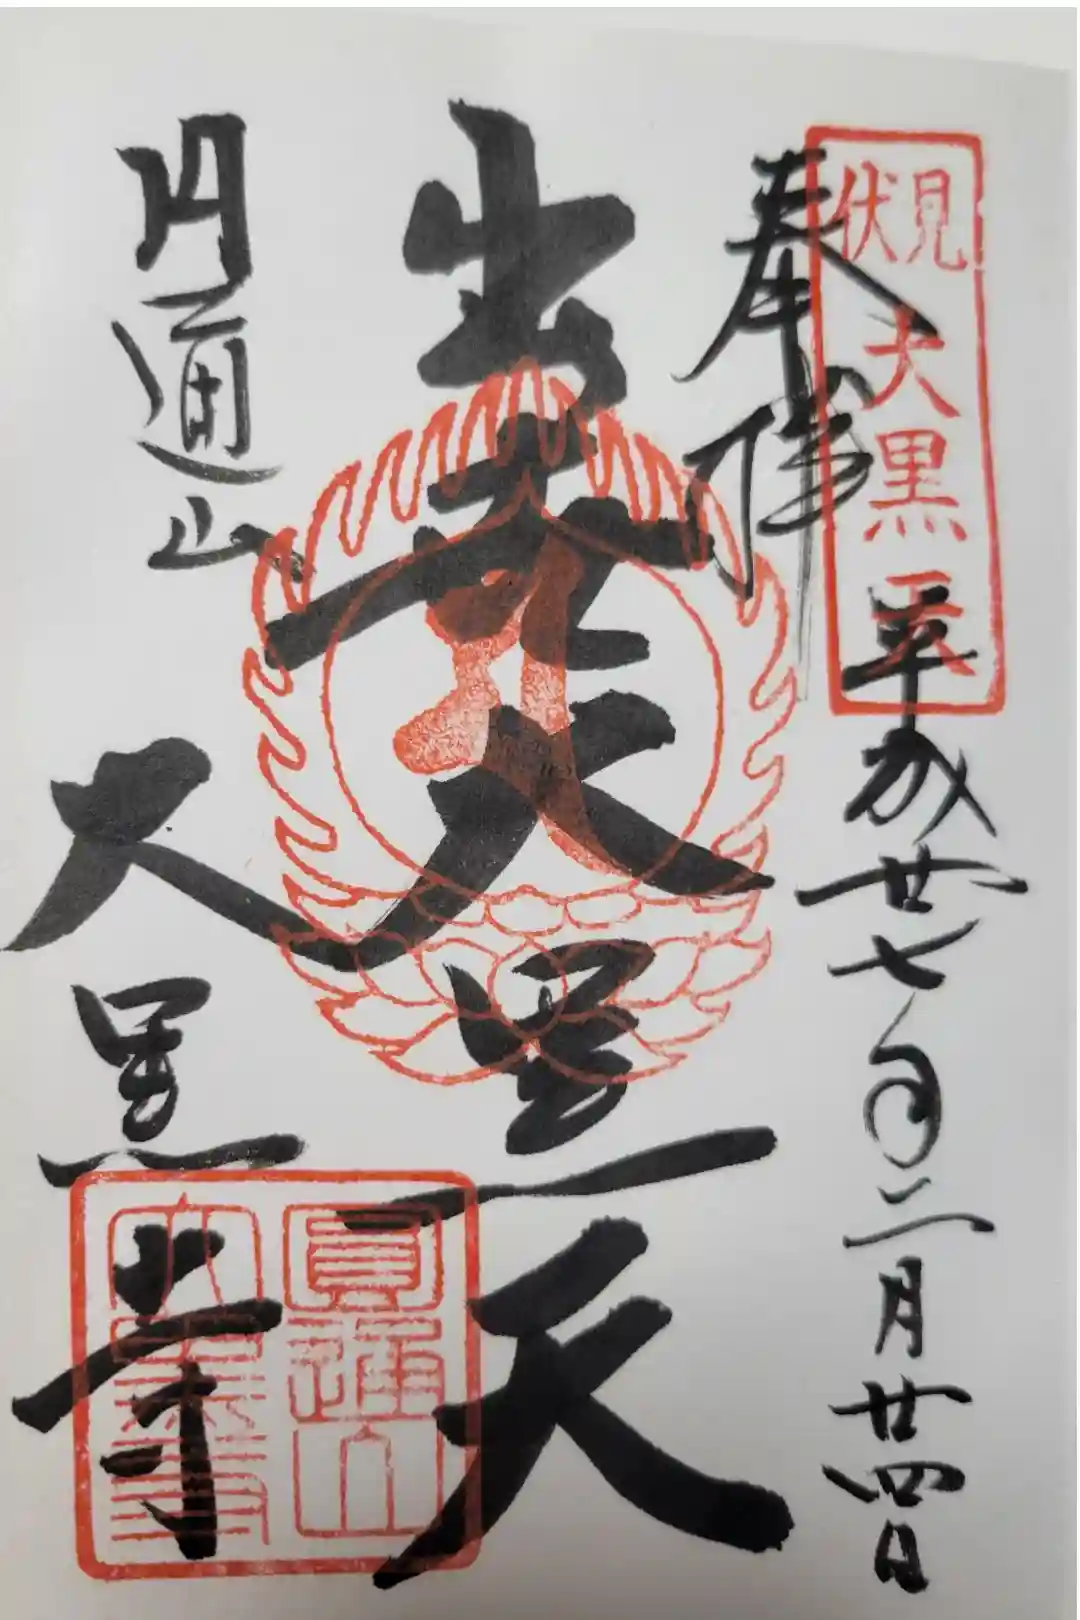 伏見大黒天
奉拝
平成廿七年二月廿四日
出世大黒天
円通山
大黒寺
圓通山
大黒寺